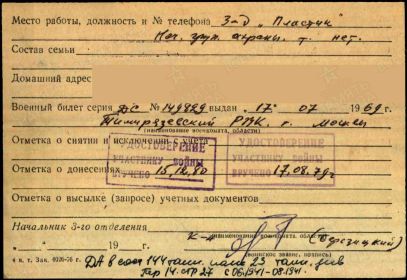 Место работы, должность и № телефона З-д „Пластик"
Нач. груп. охраны. т. нет.
Состав семьи
Домашний адрес
Военный билет серия ДС № 149899 выдан 17 " 07 1969 г.
Тимирязевский РВК г. Москвы
(наименование военкомата, области)
Отметка о снятии и исключении с учета
УДОСТОВЕРЕНИЕ УДОСТОВЕРЕНИЕ
УЧАСТНИКУ ВОЙНЫ УЧАСТНИКУ ВОЙНЫ
Отметка о донесениях
ВРУЧЕНО 15.12.80 ВРУЧЕНО 17.08.79 г.
Отметка о высылке (запросе) учетных документов
Начальник 3-го отделения
(наименование военкомата, области)
к-н
(воинское звание, подпись)
„ " 19 г.
4 н. т. Зак. 0326-76 г.
ДА в сост 144 танк. полк 23 танк. див
Пер 14 стр 27 с 06.1941-08.1941.